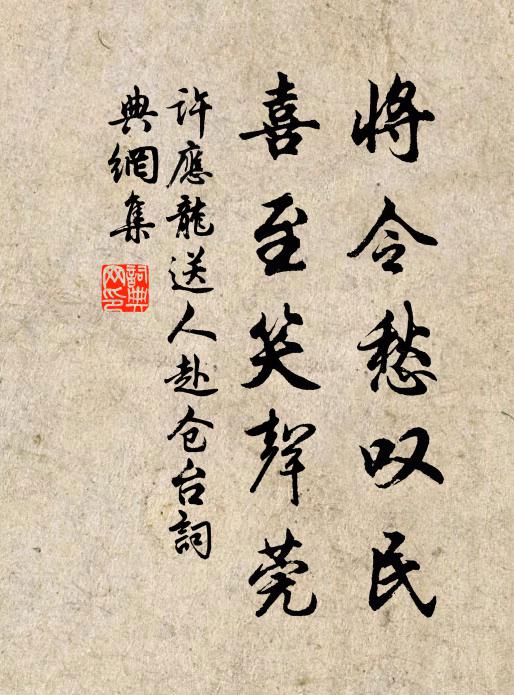 将令愁叹民
喜至笑聲莞
许應龍送人赴仓台詞
典網集
詞典
网印